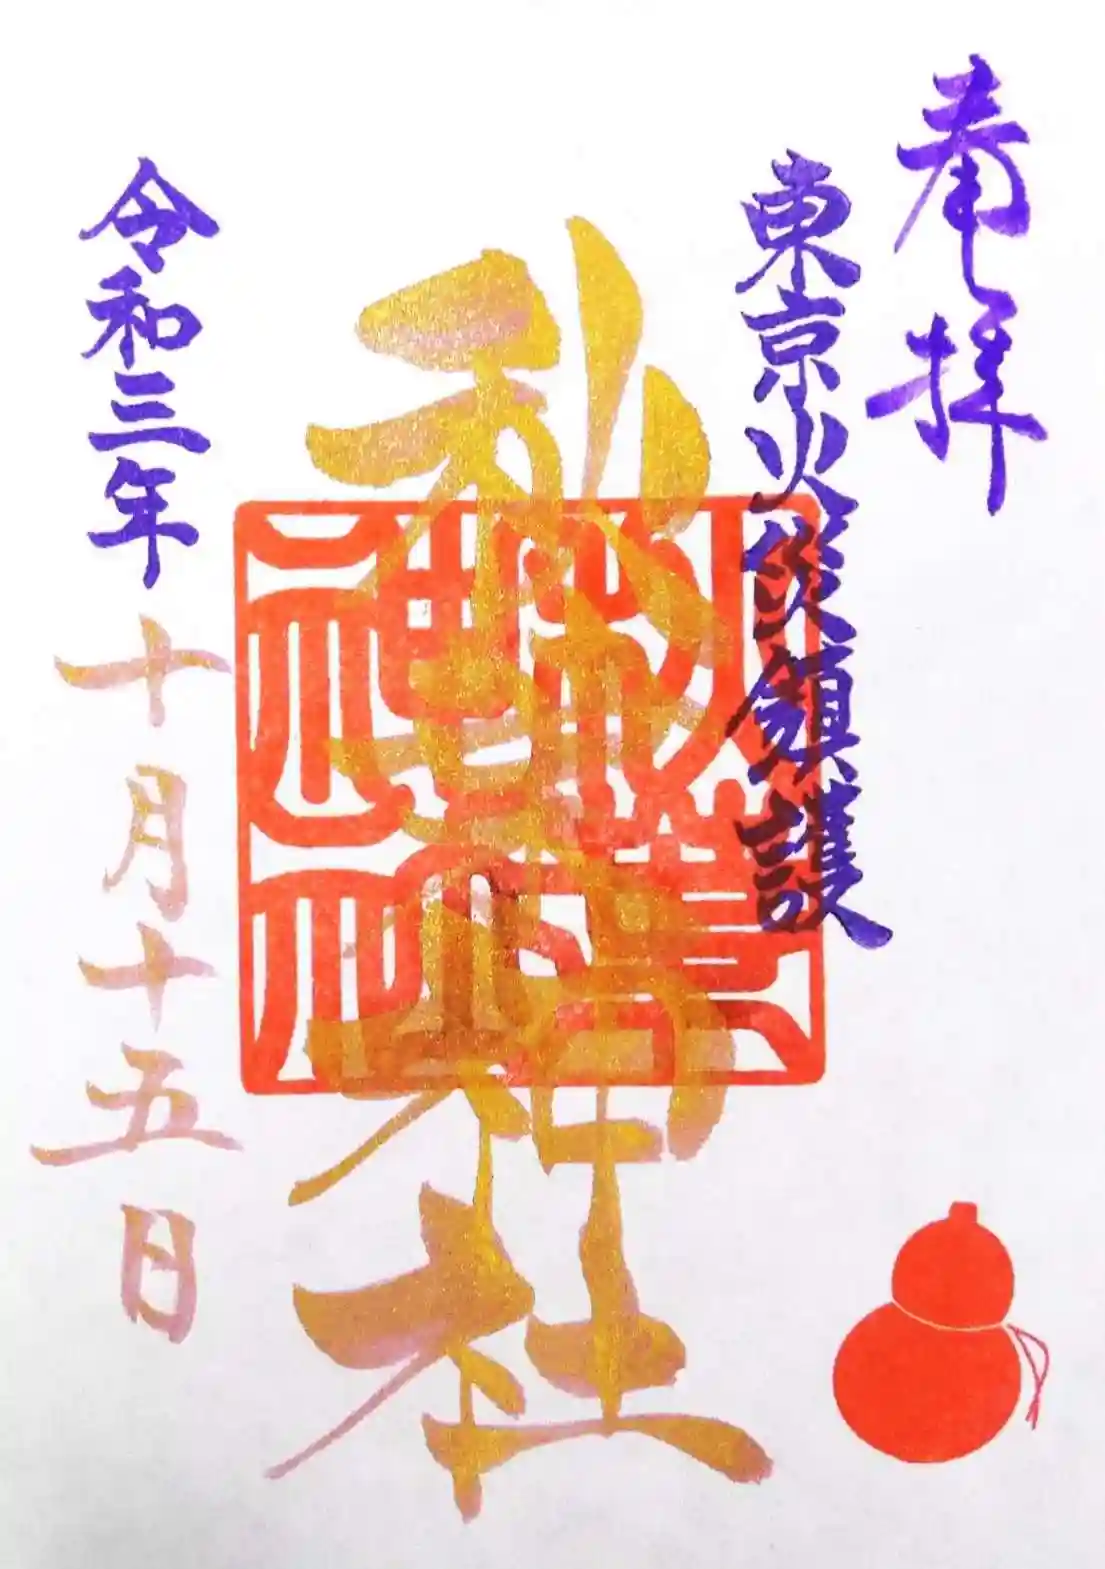 奉拝
東京火災鎮護
秋葉神社
令和三年
十月十五日